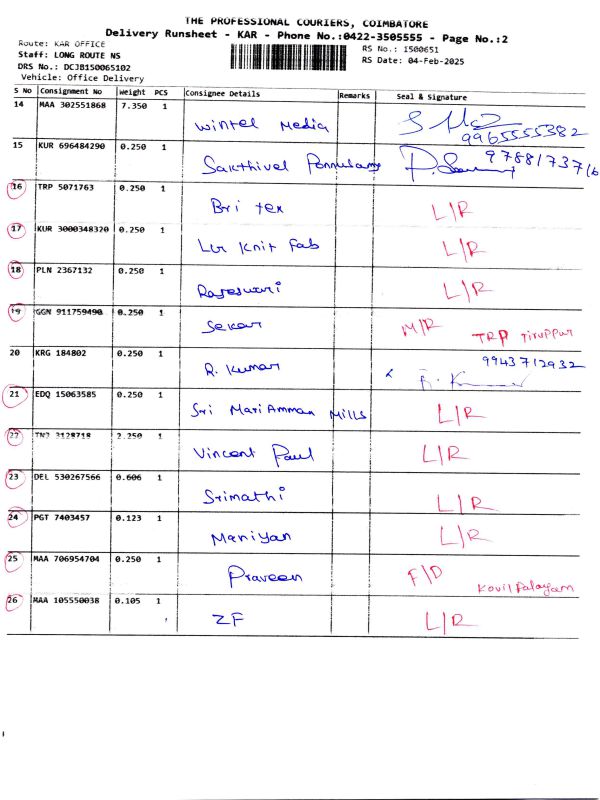 THE PROFESSIONAL COURIERS, COIMBATORE
Delivery Runsheet - KAR - Phone No.:0422-3505555 - Page No.:2
Route: KAR OFFICE
Staff: LONG ROUTE NS
DRS No.: DC3B150065102
Vehicle: Office Delivery
RS No.: 1500651
RS Date: 04-Feb-2025
S No Consignment No Weight PCS Consignee Details Remarks Seal & Signature
14 MAA 302551868 7.350 1 Wintel Media 9965555382
15 KUR 696484290 0.250 1 Sakthivel Ponnusamy
16 TRP 5071763 0.250 1 Bri tex L/R
17 KUR 3000348320 0.250 1 Knit Fab L/R
18 PLN 2367132 0.250 1 Rajeswari L/R
19 GGN 911759490 0.250 1 Sekar M/R TRP Tiruppur
20 KRG 184802 0.250 1 R. Kumar 9943712932 R. Kumar
21 EDQ 15063585 0.250 1 Sri MariAmman Mills L/R
22 TNJ 3128718 2.250 1 Vincent Paul L/R
23 DEL 530267566 0.606 1 Srimathi L/R
24 PGT 7403457 0.123 1 Maniyan L/R
25 MAA 706954704 0.250 1 Praveen F/D Kovilpalayam
26 MAA 105550038 0.105 1 ZF L/R